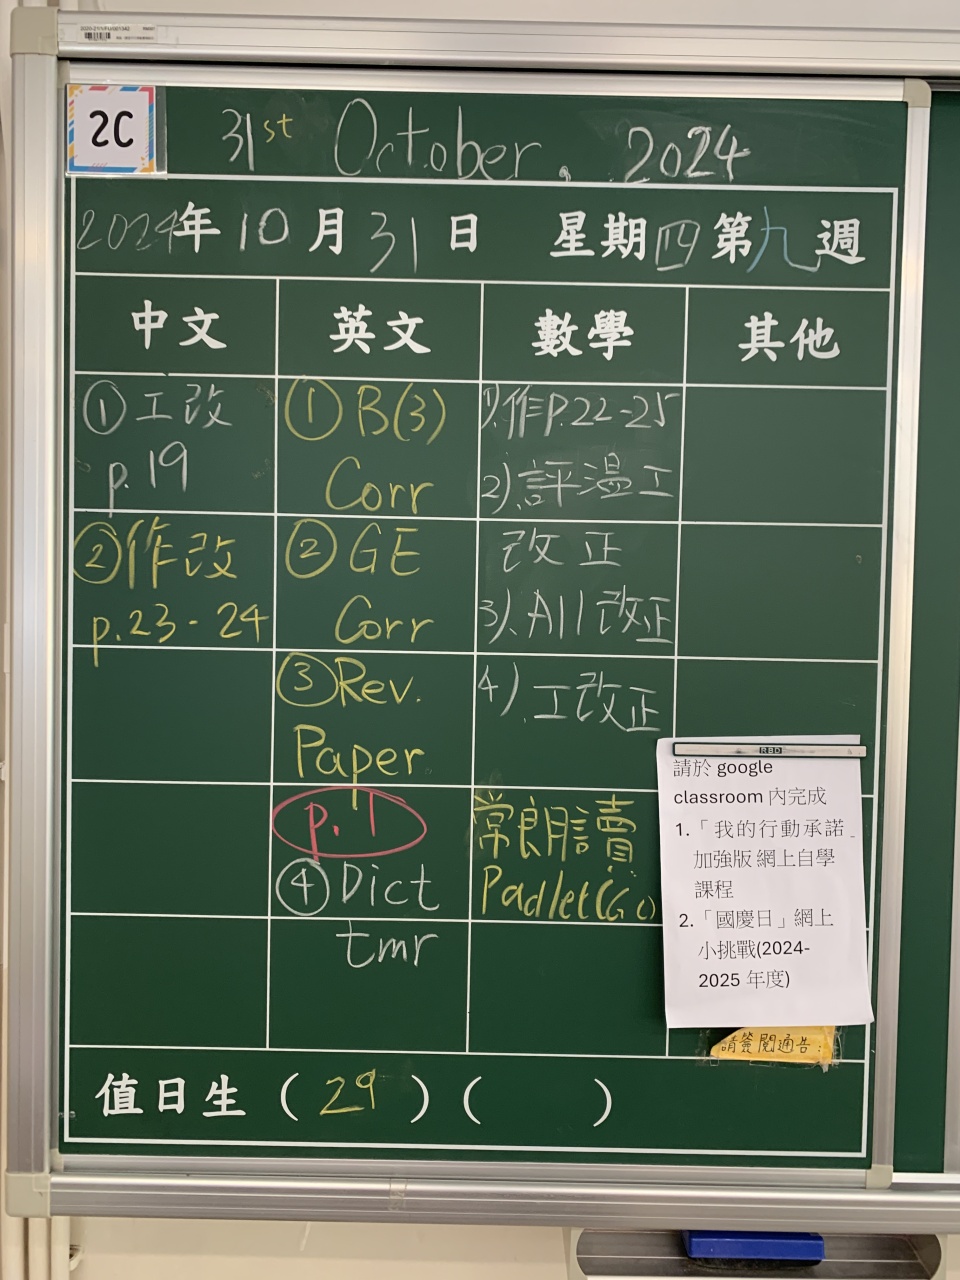 2C
31st October. 2024
2024年10月31日 星期四第九週
中文
英文
數學
其他
①工改
p.19
②作改
p.23-24
①B(3)
Corr
②GE
Corr
③Rev.
Paper
p.1
④Dict
tmr
1).作P.22-25
2).評溫工
改正
3).All改正
4).工改正
常良朗讀
Padlet(GC)
RBD
請於 google
classroom 內完成
1.「我的行動承諾」
加強版 網上自學
課程
2.「國慶日」網上
小挑戰(2024-
2025 年度)
請簽閱通告:
值日生（29）（ ）